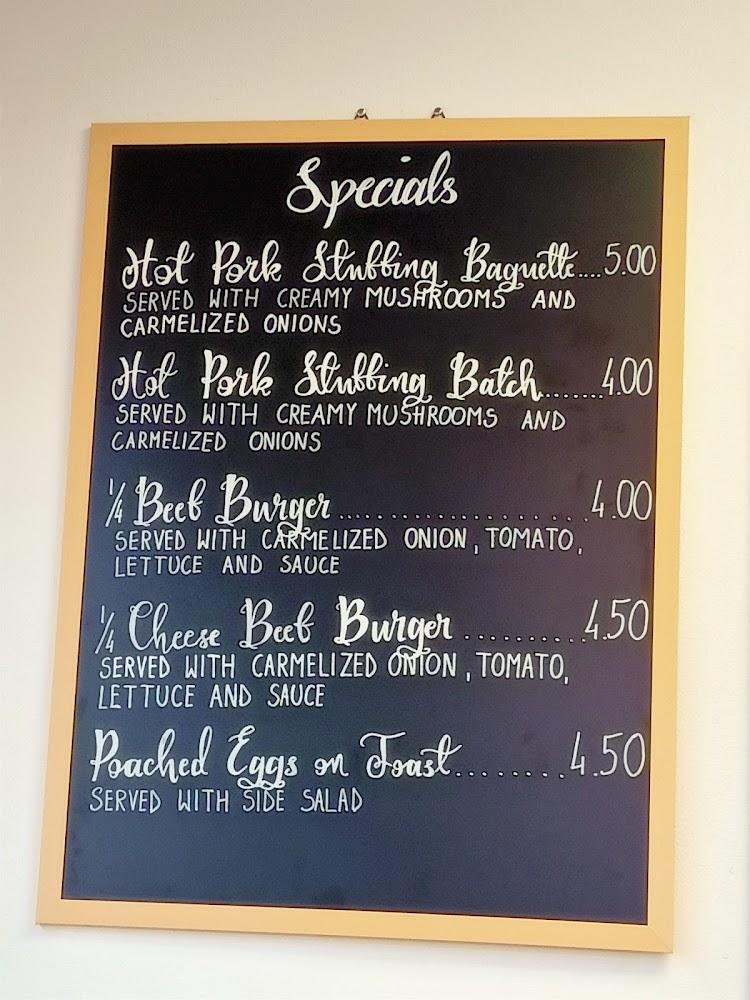 Specials
Hot Pork Stuffing Baguette....5.00
SERVED WITH CREAMY MUSHROOMS AND
CARMELIZED ONIONS
Hot Pork Stuffing Batch........4.00
SERVED WITH CREAMY MUSHROOMS AND
CARMELIZED ONIONS
1/4 Beef Burger......................4.00
SERVED WITH CARMELIZED ONION, TOMATO,
LETTUCE AND SAUCE
1/4 Cheese Beef Burger..........4.50
SERVED WITH CARMELIZED ONION, TOMATO,
LETTUCE AND SAUCE
Poached Eggs on Toast........4.50
SERVED WITH SIDE SALAD